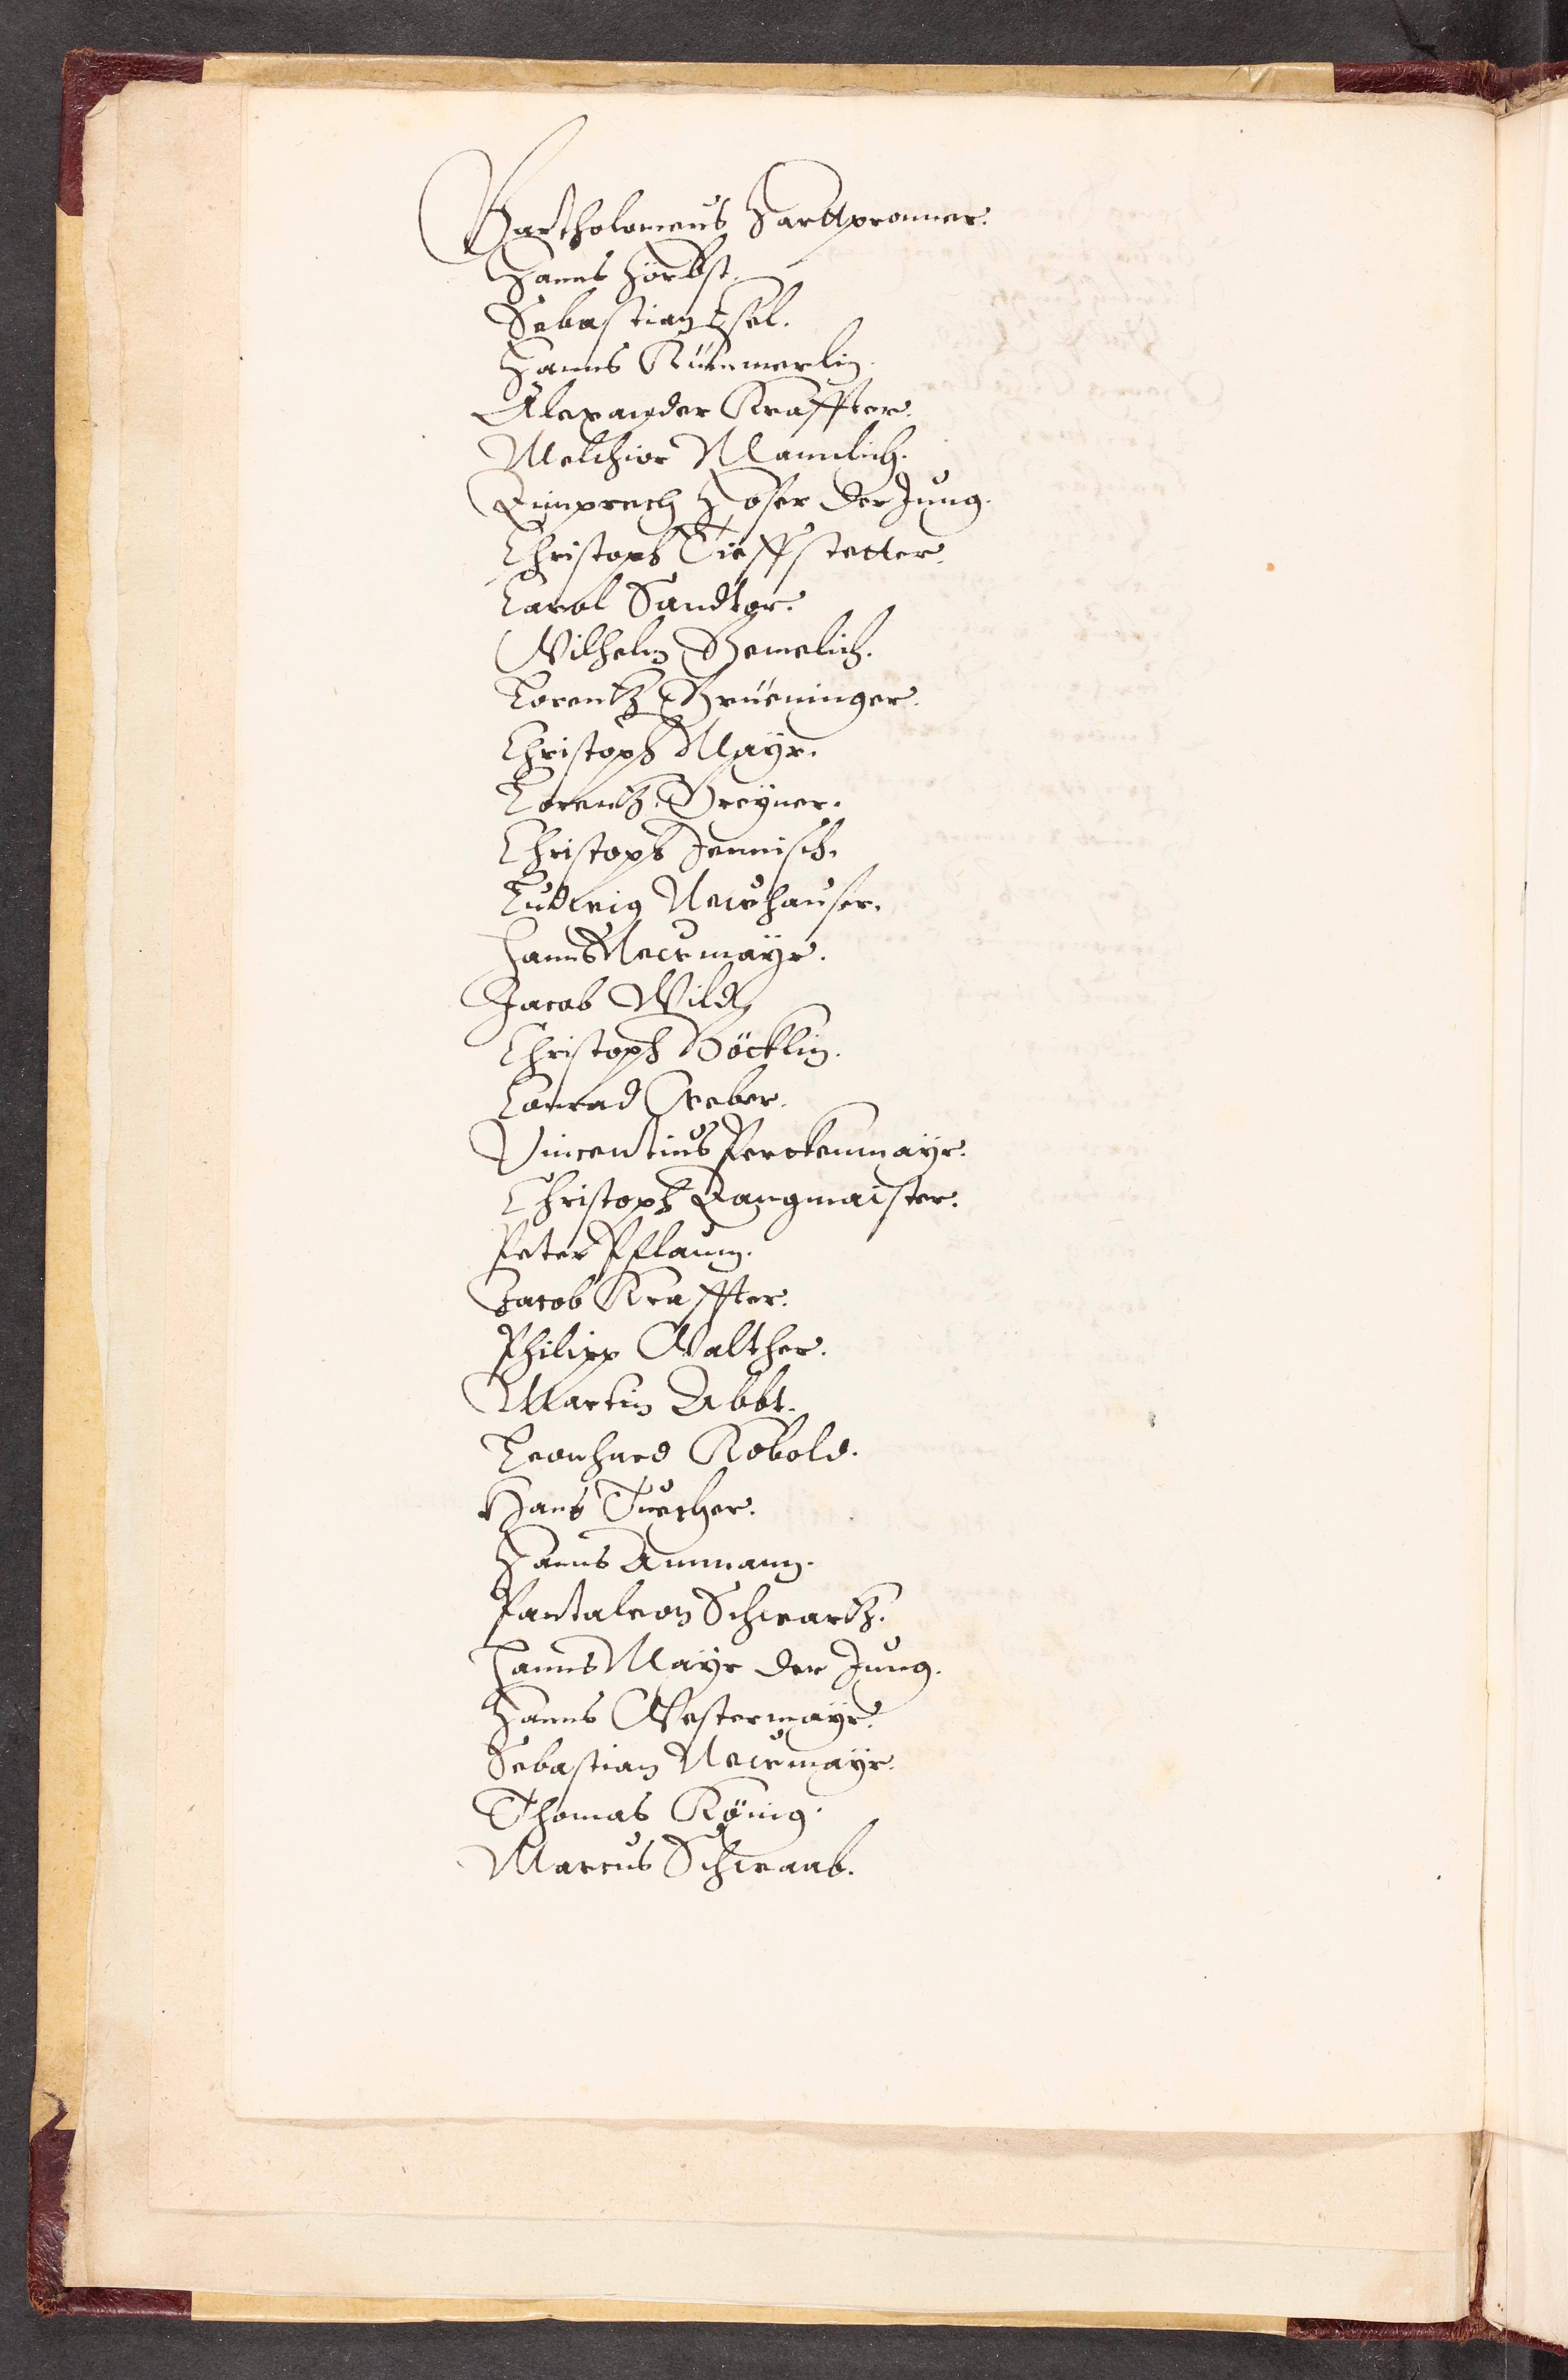 Bartholomeus Harttpronner.
Hanns Hörbst.
Sebastian Isel.
Hanns Kümmerlin.
Alexander Kraffter.
Melchior Mannlich.
Rimprech Hoser der Jung.
Christoph Tieffstetter.
Carol Sandtor.
Wilhelm Hemelich.
Lorentz Grüeninger.
Christoph Mayr.
Lorentz Greyner.
Christoph Jennisch.
Ludwig Newhauser.
Hanns Newmayr.
Jacob Wild.
Christoph Böcklin.
Conrad Weber.
Vincentius Perckenmayr.
Christoph Rangmaister.
Peter Pflaum.
Jacob Kraffter.
Philipp Walther.
Martin Abbt.
Leonhard Kobold.
Hans Tuecher.
Hanns Ammann.
Pantaleon Schwartz.
Hanns Mayr der Jung.
Hanns Westermayr.
Sebastian Newmayr.
Thomas König.
Marcus Schwaab.